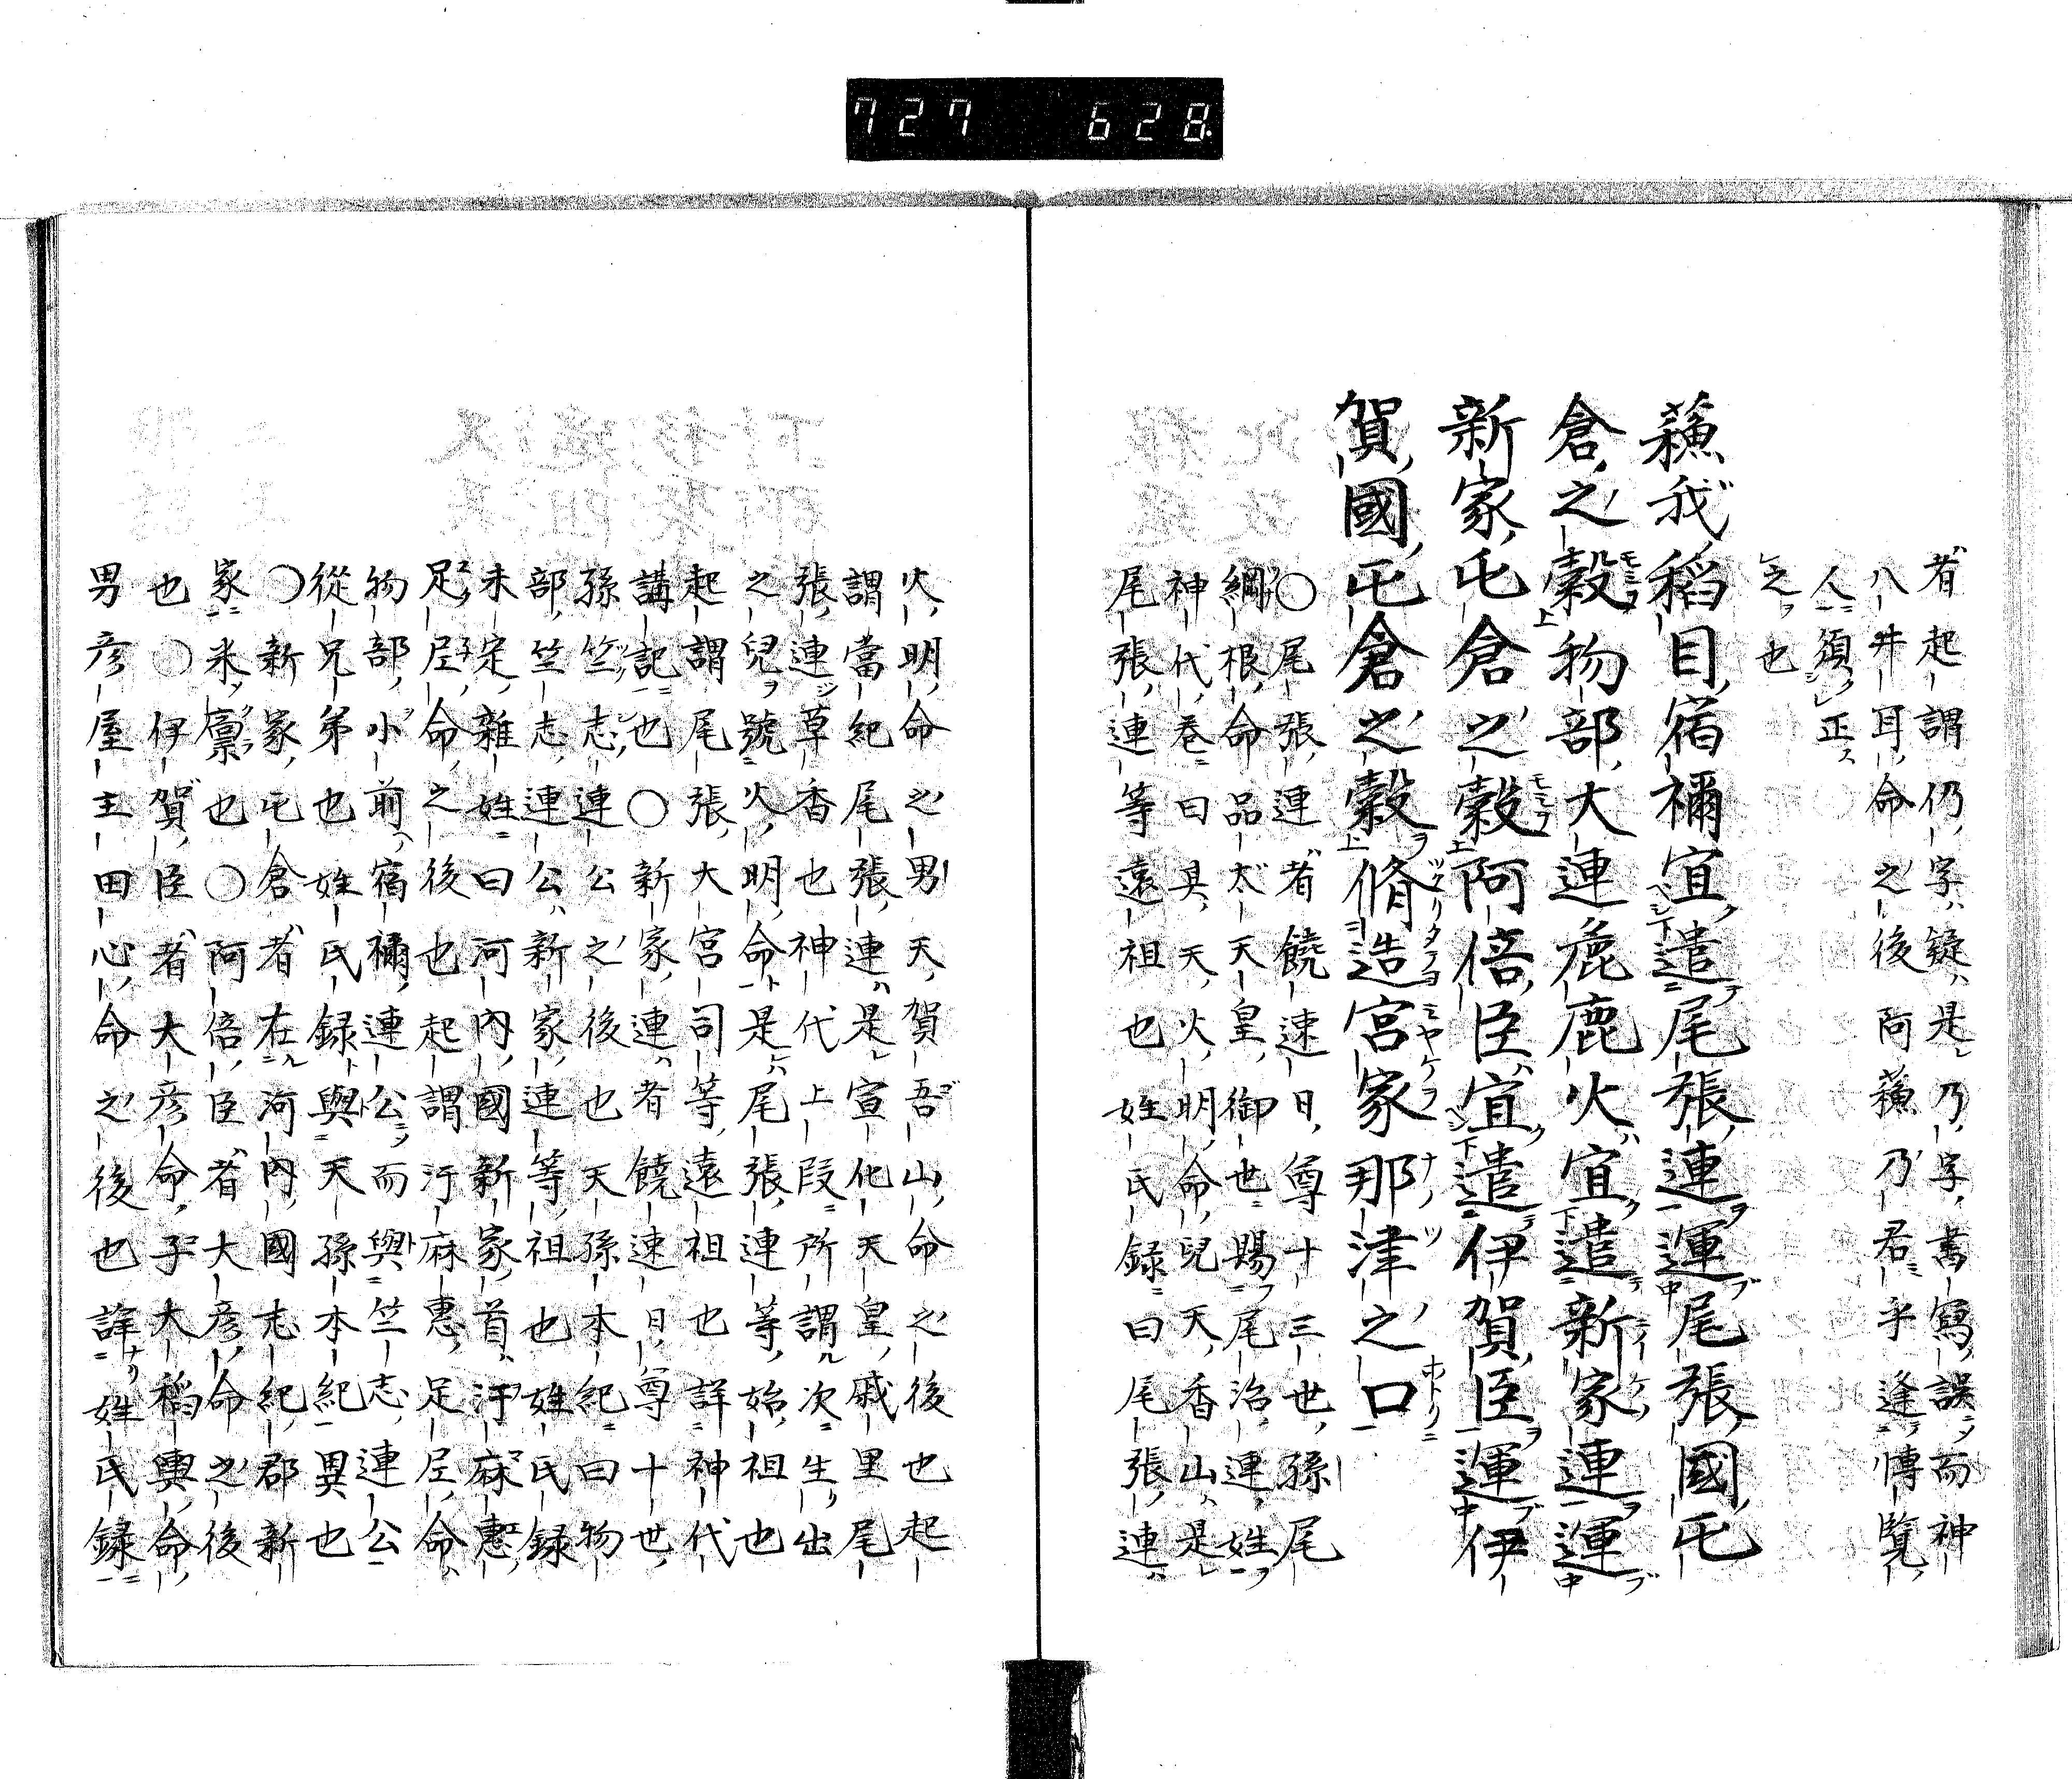 727 628
者起謂仍字疑是乃字書寫誤而神
八井耳命之後阿蘓乃君乎逢博覧
人須正
之也
蘓我稻目宿禰宜遣尾張連運尾張國屯
倉之穀物部大連麁鹿火宜遣新家連運
新家屯倉之穀阿倍臣宜遣伊賀臣運伊
賀國屯倉之穀脩造宮家那津之口
〇尾張連者饒速日尊十三世孫尾
綱根命品太天皇御世賜尾治連姓
神代巻曰其天火明命兒天香山是
尾張連等遠祖也姓氏録曰尾張連
火明命之男天賀吾山命之後也起
謂當紀尾張連是宣化天皇戚里尾
張連草香也神代上段所謂次生出
之兒號火明命是尾張連等始祖也
起謂尾張大宮司等遠祖也詳神代
講記也〇新家連者饒速日尊十世
孫竺志連公之後也天孫本紀曰物
部竺志連公新家連等祖也姓氏録
未定雜姓曰河內國新家首汙麻惠
足尼命之後也起謂汙麻惠足尼命
物部小前宿禰連公而與竺志連公
從兄弟也姓氏録與天孫本紀異也
〇新家屯倉者在河內國志紀郡新
家米廩也〇阿倍臣者大彦命之後
也〇伊賀臣者大彦命子大稻輿命
男彦屋主田心命之後也詳姓氏録